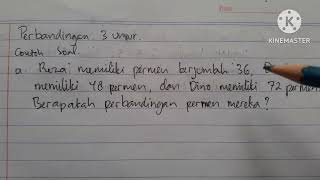 KINEMASTER
Perbandingan 3 umur.
Contoh Soal.
a. Reza memiliki permen berjumlah 36,
memiliki 48 permen, dan Dino memiliki 72 permen
Berapakah perbandingan permen mereka?